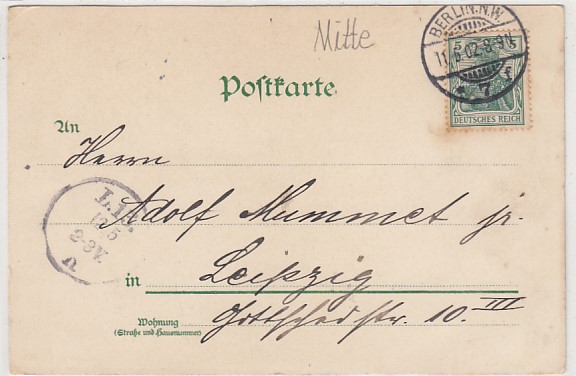 Mitte
BERLIN.N.W.
11.5.02.8-9N.
* 7 f
5
DEUTSCHES REICH
Postkarte
An
Herrn
Adolf Mummet jr.
L.
12 5
2-3V.
in Leipzig
Gottschedstr. 10 III
Wohnung
(Straße und Hausnummer)